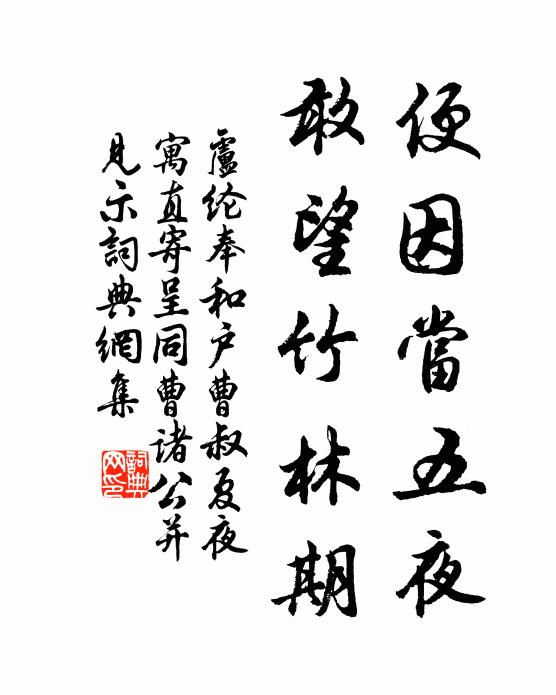 便因當五夜
敢望竹林期
盧纶奉和户曹叔夏夜
寓直寄呈同曹諸公并
見示詞典網集
詞典
网印